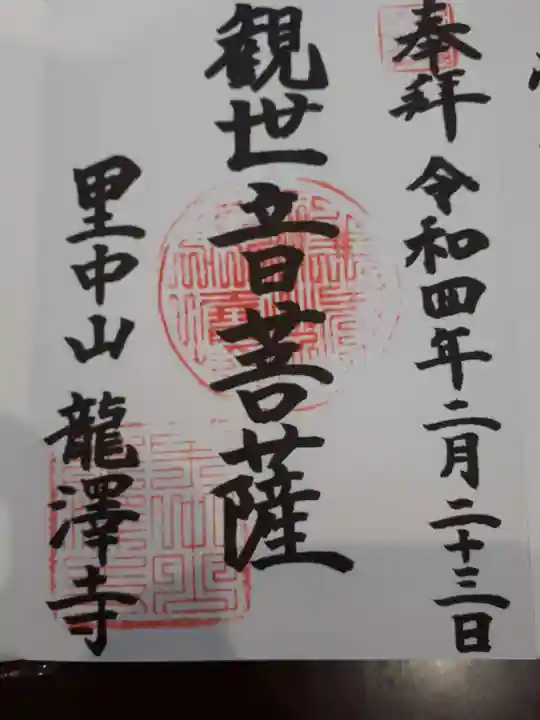 奉拜 令和四年二月二十三日
観世音菩薩
里中山 龍澤寺